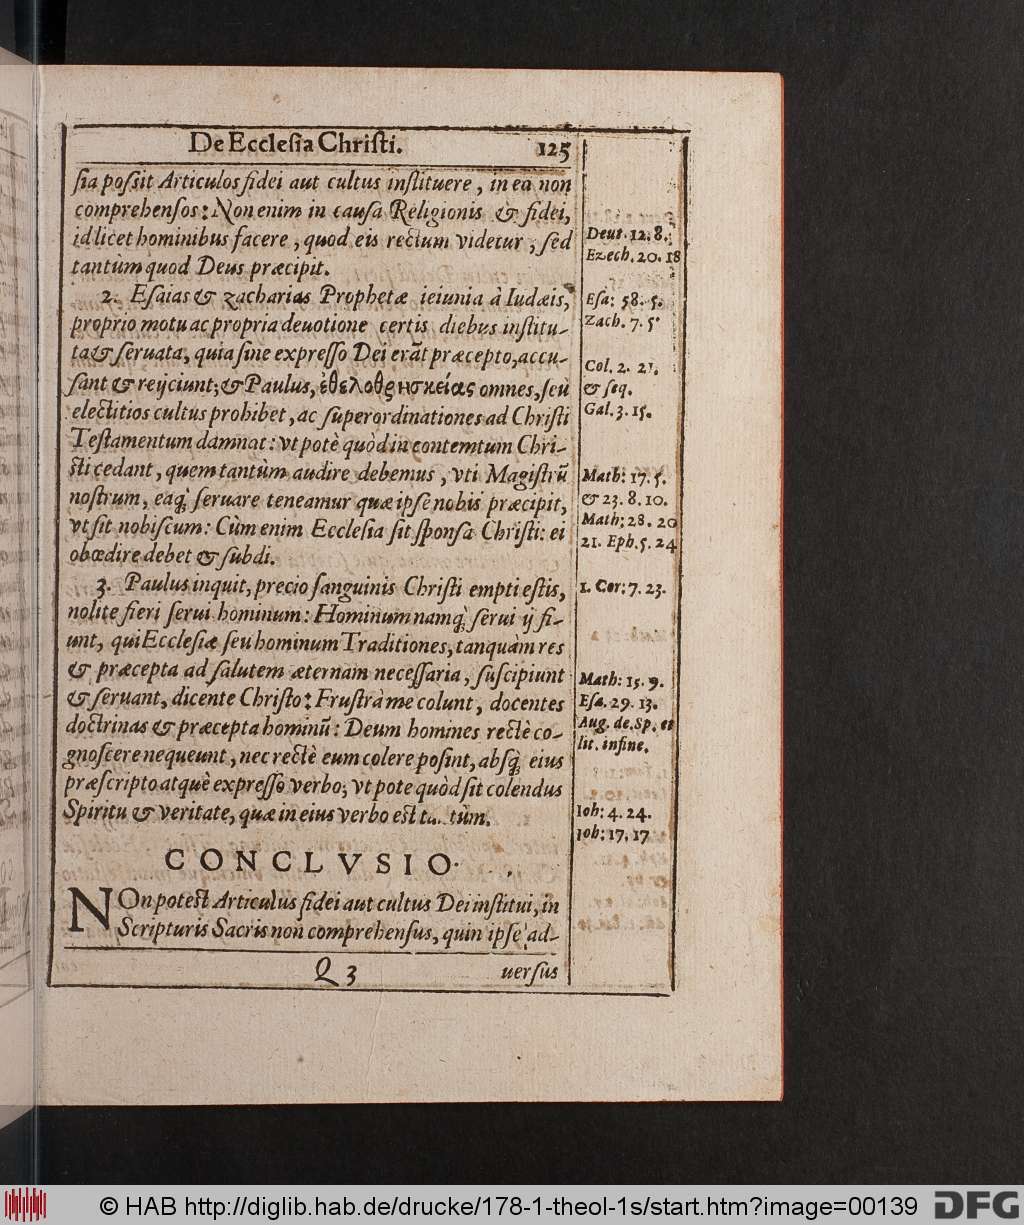 De Eccleſia Chriſti. 125
ſia poſsit Articulos fidei aut cultus inſtituere, in ea non
comprehenſos: Non enim in cauſa Religionis & fidei,
id licet hominibus facere, quod eis rectum videtur, ſed
tantùm quod Deus præcipit.
Deut. 12. 8.
Ezech. 20. 18
2. Eſaias & zacharias Prophetæ ieiunia à Iudæis,
proprio motu ac propria deuotione certis diebus inſtitu-
ta & ſeruata, quia ſine expreſſo Dei erãt præcepto, accu-
ſant & reijciunt; & Paulus, ἐθελοθρησκείας omnes, ſeu
electitios cultus prohibet, ac ſuperordinationes ad Chriſti
Teſtamentum damnat: vt potè quòd in contemtum Chri-
ſti cedant, quem tantùm audire debemus, vti Magiſtrũ
noſtrum, eaq́; ſeruare teneamur quæ ipſe nobis præcipit,
vt ſit nobiſcum: Cùm enim Eccleſia ſit ſponſa Chriſti: ei
obœdire debet & ſubdi.
Eſa: 58. 5.
Zach. 7. 5
Col. 2. 21.
& ſeq.
Gal. 3. 15.
Math: 17. 5.
& 23. 8. 10.
Math; 28. 20
21. Eph. 5. 24
3. Paulus inquit, precio ſanguinis Chriſti empti eſtis,
nolite fieri ſerui hominum: Hominum namq́; ſerui ij fi-
unt, qui Eccleſiæ ſeu hominum Traditiones, tanquàm res
& præcepta ad ſalutem æternam neceſſaria, ſuſcipiunt
& ſeruant, dicente Chriſto: Fruſtrà me colunt, docentes
doctrinas & præcepta hominũ: Deum homines rectè co-
gnoſcere nequeunt, nec rectè eum colere poſint, abſq́; eius
præſcripto atquè expreſſo verbo; vt pote quòd ſit colendus
Spiritu & veritate, quæ in eius verbo eſt ta.. tùm.
1. Cor: 7. 23.
Math: 15. 9.
Eſa. 29. 13.
Aug. de. Sp. et
lit. in fine.
Ioh: 4. 24.
Joh: 17. 17
CONCLVSIO.
NOn poteſt Articulus fidei aut cultus Dei inſtitui, in
Scripturis Sacris non comprehenſus, quin ipſe ad-
Q 3 uerſus
© HAB http://diglib.hab.de/drucke/178-1-theol-1s/start.htm?image=00139 DFG